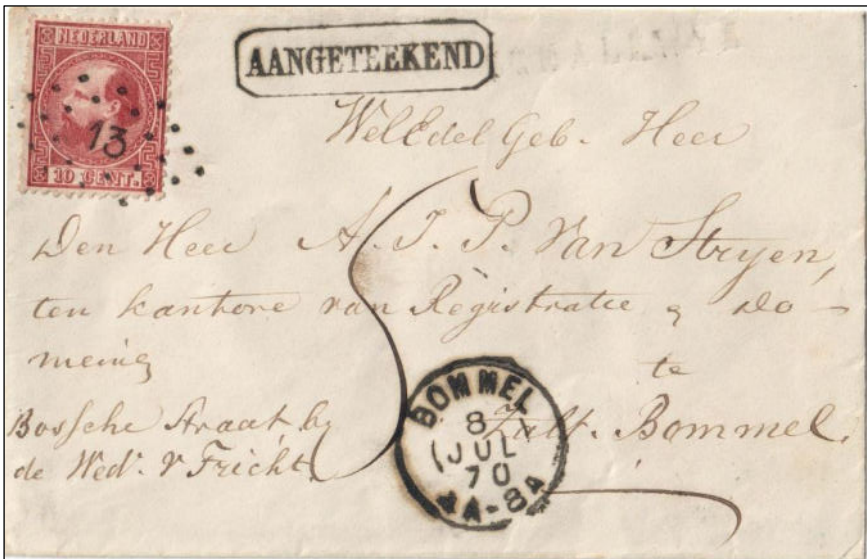 NEDERLAND
13
10 CENT.
AANGETEEKEND
WelEdel Geb. Heer
Den Heer A. J. P. Van Stryen,
ten kantore van Registratie & Do-
meing
te
Zalt. Bommel.
Bossche Straat, by
de Wedr. v Fricht.
BOMMEL
8
JUL
70
4A-8A